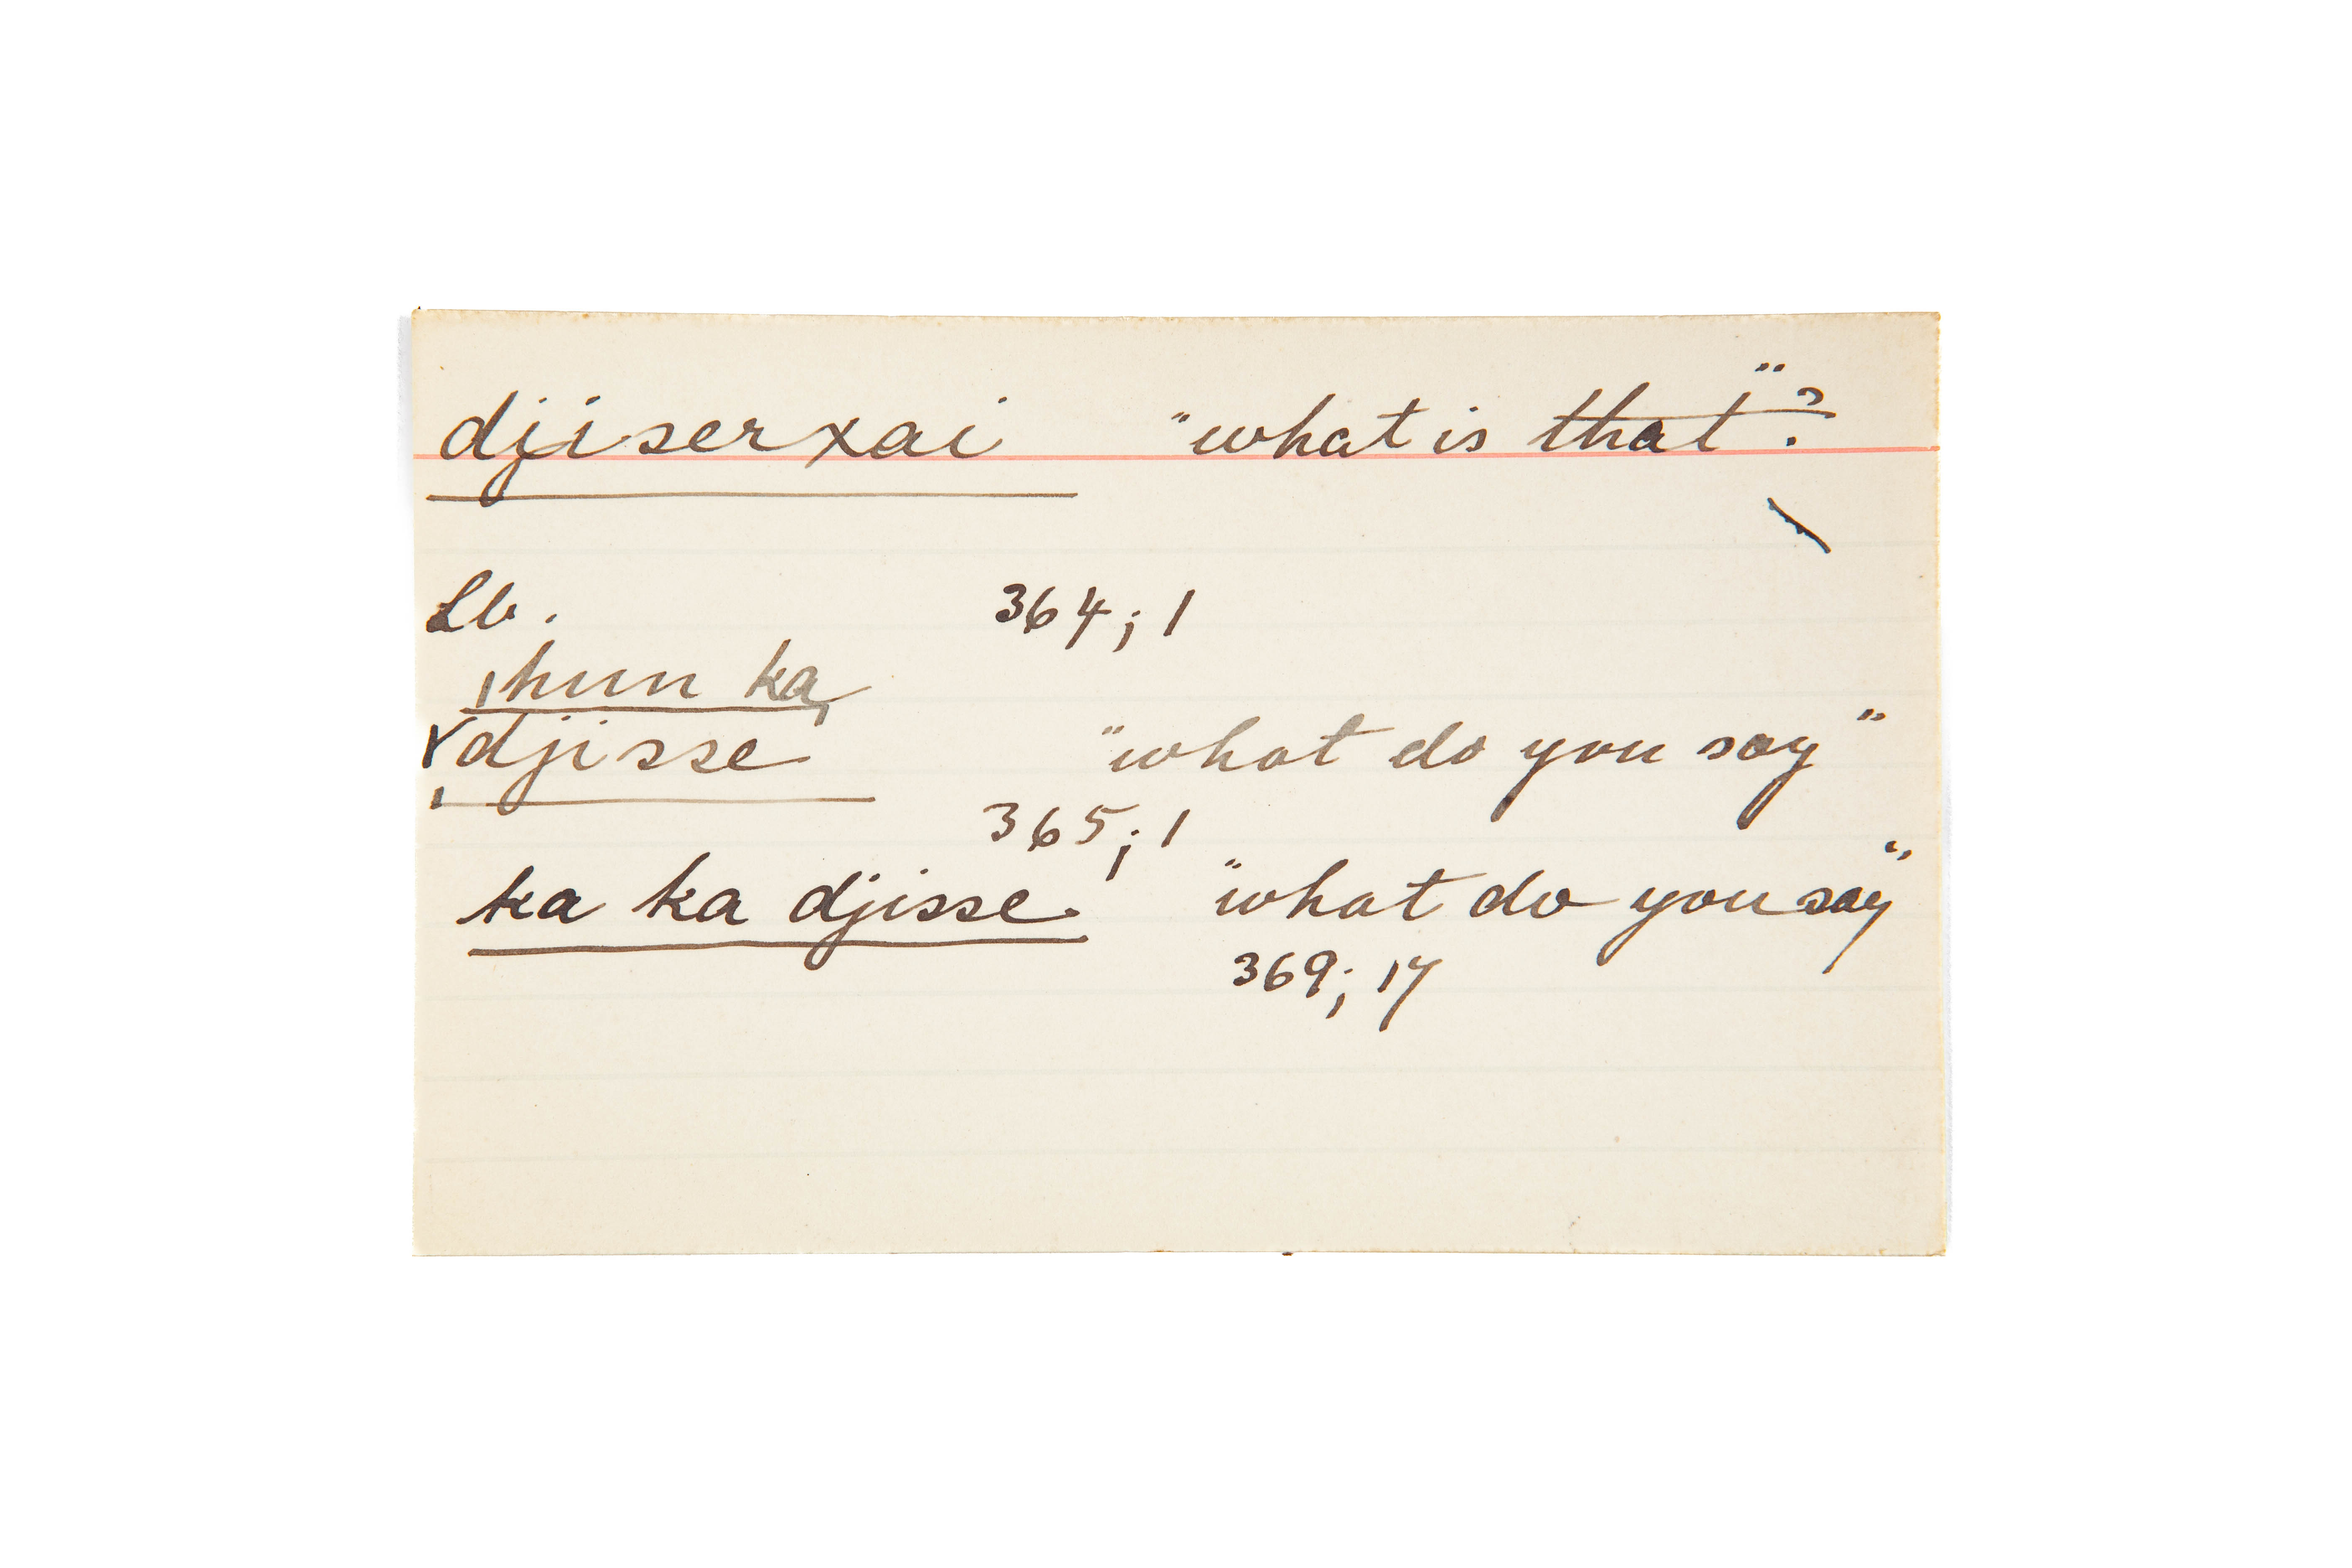 djiserxai "what is that"?
Lb. 364; 1
hun ka
djisse "what do you say"
365; 1
ka ka djisse "what do you say"
369; 17